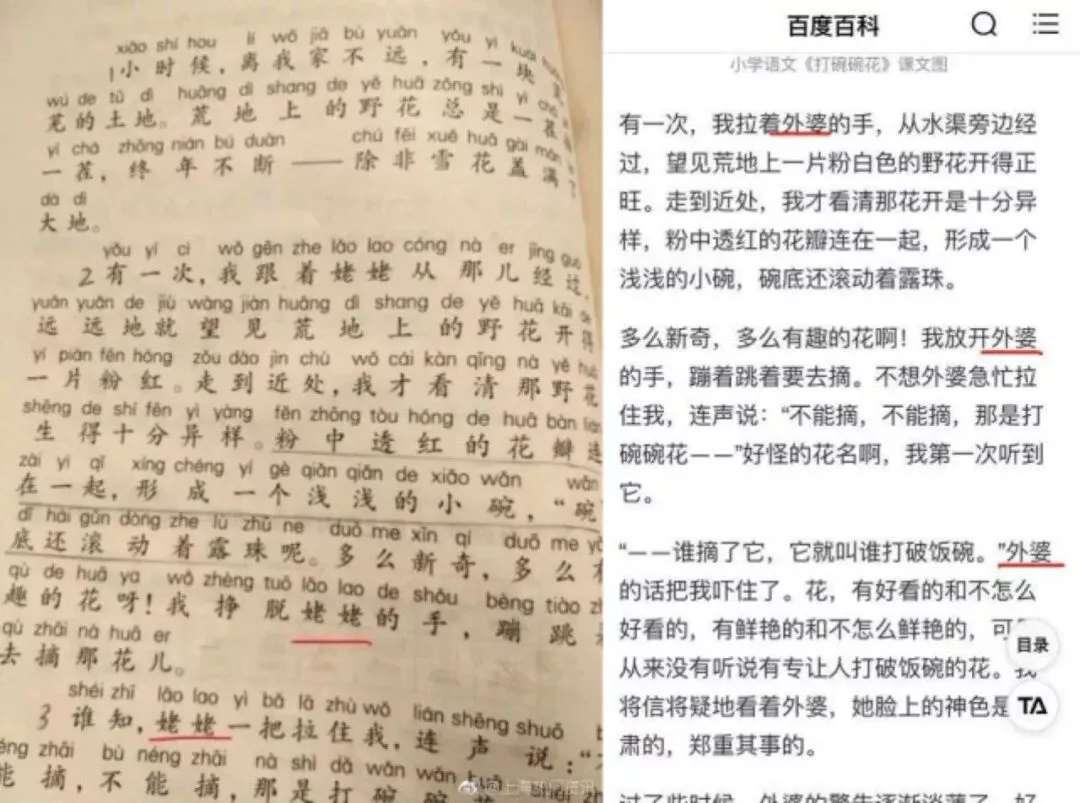 xiǎo shí hou lí wǒ jiā bù yuǎn yǒu yí kuài
1小时候，离我家不远，有一块
wú de tǔ dì huāng dì shang de yě huā zǒng shì yì chá
芜的土地。荒地上的野花总是一茬
yì chá zhōng nián bú duàn chú fēi xuě huā gài mǎn
一茬，终年不断——除非雪花盖满了
dà dì
大地。
yǒu yí cì wǒ gēn zhe lǎo lao cóng nà er jīng guò
2有一次，我跟着姥姥从那儿经过，
yuǎn yuǎn de jiù wàng jiàn huāng dì shang de yě huā kāi de
远远地就望见荒地上的野花开得
yí piàn fěn hóng zǒu dào jìn chù wǒ cái kàn qīng nà yě huā
一片粉红。走到近处，我才看清那野花
shēng de shí fēn yì yàng fěn zhōng tòu hóng de huā bàn lián
生得十分异样。粉中透红的花瓣连
zài yì qǐ xíng chéng yí gè qiǎn qiǎn de xiǎo wǎn wǎn
在一起，形成一个浅浅的小碗，“碗”
dǐ hái gǔn dòng zhe lù zhū ne duō me xīn qí duō me yǒu
底还滚动着露珠呢。多么新奇，多么有
qù de huā ya wǒ zhèng tuō lǎo lao de shǒu bèng tiào zhe
趣的花呀！我挣脱姥姥的手，蹦跳着
qù zhāi nà huā er
去摘那花儿。
shéi zhī lǎo lao yì bǎ lā zhù wǒ lián shēng shuō
3谁知，姥姥一把拉住我，连声说：“不
néng zhāi bù néng zhāi nà shì dǎ wǎn wǎn huā
能摘，不能摘，那是打碗碗花
百度百科
小学语文《打碗碗花》课文图
有一次，我拉着外婆的手，从水渠旁边经
过，望见荒地上一片粉白色的野花开得正
旺。走到近处，我才看清那花开是十分异
样，粉中透红的花瓣连在一起，形成一个
浅浅的小碗，碗底还滚动着露珠。
多么新奇，多么有趣的花啊！我放开外婆
的手，蹦着跳着要去摘。不想外婆急忙拉
住我，连声说：“不能摘，不能摘，那是打
碗碗花——”好怪的花名啊，我第一次听到
它。
“——谁摘了它，它就叫谁打破饭碗。”外婆
的话把我吓住了。花，有好看的和不怎么
好看的，有鲜艳的和不怎么鲜艳的，可
从来没有听说有专让人打破饭碗的花。我
将信将疑地看着外婆，她脸上的神色是
肃的，郑重其事的。
过了些时候，外婆的警告逐渐淡薄了，好
目录
TA